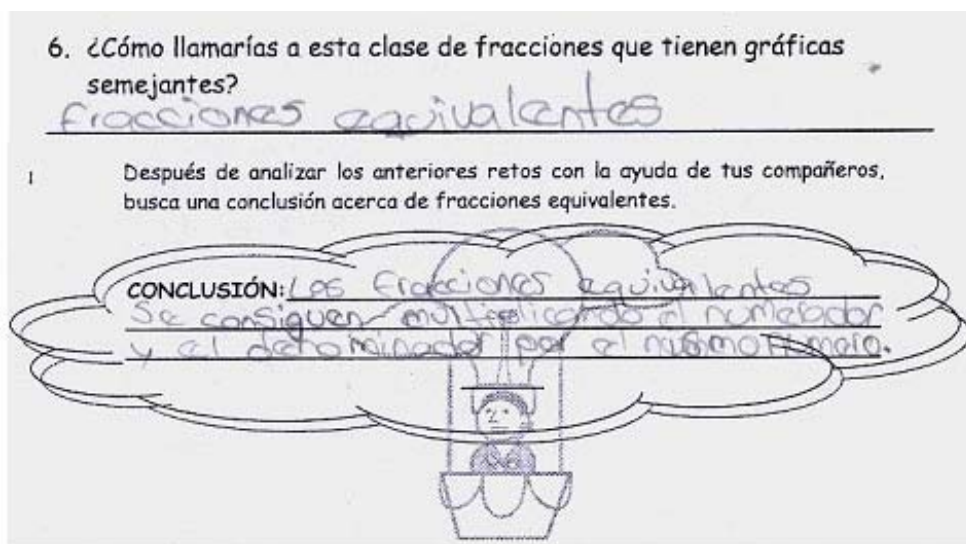 6. ¿Cómo llamarías a esta clase de fracciones que tienen gráficas
semejantes?
fracciones equivalentes
Después de analizar los anteriores retos con la ayuda de tus compañeros,
busca una conclusión acerca de fracciones equivalentes.
CONCLUSIÓN: Las fracciones equivalentes
Se consiguen multiplicando el numerador
y el denominador por el mismo numero.